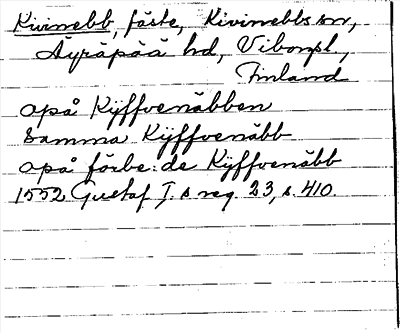 Kivinebb, fäste, Kivinebbs sn,
Äyräpää hd, Viborgs l,
Finland
opå Kÿffvenäbben
Samma Kÿffvenäbb
opå förbe:de Kÿffvenäbb
1552 Gustaf I:s reg. 23, s. 410.